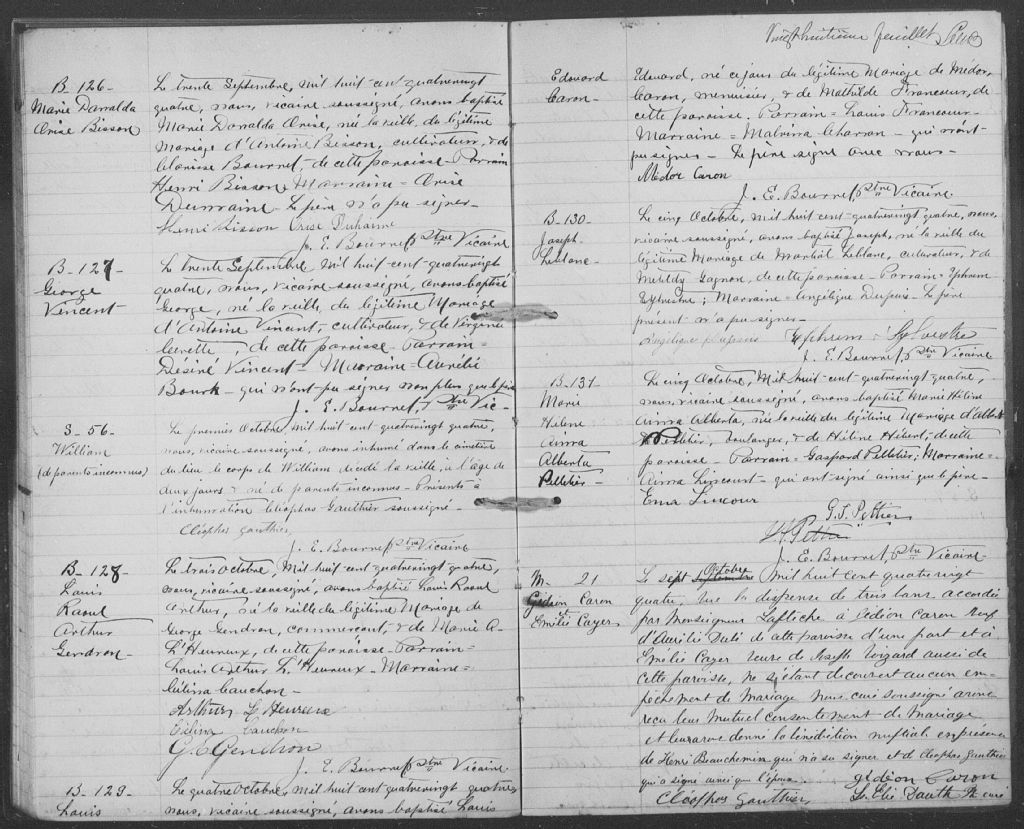 B. 126-
Marie Darralda
Orise Bisson
Le trente Septembre, mil huit-cent quatrevingt
quatre, nous, vicaire soussigné, avons baptisé
Marie Darralda Orise, née la veille, du légitime
Mariage d'Antoine Bisson, cultivateur, & de
Clarisse Bourret, de cette paroisse. Parrain
Henri Bisson. Marraine = Orise
Duhaime - Le père n'a pu signer -
Henri Bisson Orise Duhaime
J. E. Bourret, Ptre Vicaire
B- 127-
George
Vincent
Le trente Septembre, mil huit-cent-quatrevingt
quatre, nous, vicaire soussigné, avons baptisé
George, né la veille, du légitime Mariage
d'Antoine Vincent, cultivateur, & de Virginie
de cette paroisse. Parrain =
Désiré Vincent - Marraine = Aurélie
Bourk - qui n'ont pu signer non plus que le père
J. E. Bourret, Ptre Vic-
S- 56-
William
(de parents inconnus)
Le premier Octobre, mil huit cent quatrevingt quatre,
nous, vicaire soussigné, avons inhumé dans le cimetière
du lieu le corps de William décédé la veille, à l'âge de
deux jours & né de parents inconnus - Présents à
l'inhumation Cléophas Gauthier soussigné -
Cléophas Gauthier
J. E. Bourret, Ptre Vicaire
B- 128-
Louis
Raoul
Arthur
Gendron-
Le trois Octobre, mil huit-cent quatrevingt quatre,
nous, vicaire soussigné, avons baptisé Louis Raoul
Arthur, né la veille du légitime Mariage de
George Gendron, commerçant, & de Marie A-
L'Heureux, de cette paroisse - Parrain =
Louis Arthur L'Heureux - Marraine =
Célina Cauchon -
Arthur L Heureux
Célina Cauchon
G. E Gendron
J. E. Bourret Ptre Vicaire
B- 129-
Louis
Le quatre Octobre, mil huit cent quatrevingt quatre,
nous, vicaire soussigné, avons baptisé Louis
Vingt huitième feuillet
Edouard
Caron-
Edouard, né ce jour du légitime Mariage de Médor
Caron, menuisier, & de Mathilde Francoeur, de
cette paroisse. Parrain = Louis Francoeur -
Marraine = Malvina Charron - qui n'ont
pu signer - Le père signe avec nous -
Médor Caron
J. E. Bourret, Ptre Vicaire
B- 130-
Joseph
Leblanc-
Le cinq Octobre, mil huit cent quatrevingt quatre, nous,
vicaire soussigné, avons baptisé Joseph, né la veille du
légitime Mariage de Martial Leblanc, cultivateur, & de
Gagnon, de cette paroisse - Parrain = Ephrem
Sylvestre; Marraine = Angélique Dupuis - Le père
présent n'a pu signer -
Angélique Dupuis Ephrem Sylvestre
J. E. Bourret, Ptre Vicaire
B- 131-
Marie
Hélène
Anna
Alberta
Pelletier-
Le cinq Octobre, mil huit-cent quatrevingt-quatre,
nous, vicaire soussigné, avons baptisé Marie Hélène
Anna Alberta, née la veille du légitime Mariage d'Albert
Pelletier, boulanger, & de Hélène Hébert, de cette
paroisse - Parrain = Gaspard Pelletier; Marraine =
Lincourt - qui ont signé ainsi que le père -
Ema Lincour
G. S. Peltier
J. E. Bourret, Ptre Vicaire -
M- 21
Gédéon Caron
et
Emélie Cayer
Le sept Septembre Octobre mil huit cent quatrevingt
quatre, vu la dispense de trois bans accordée
par Monseigneur Laflèche à Gédéon Caron veuf
d'Aurélie de cette paroisse d'une part et à
Emélie Cayer veuve de Joseph aussi de
cette paroisse, ne s'étant découvert aucun em-
pêchement de mariage nous curé soussigné avons
reçu leur mutuel consentement de mariage
et leur avons donné la bénédiction nuptiale en présence
de Henri Beauchemin qui n'a su signer et de Cléophas Gauthier
qui a signé ainsi que l'époux. gédion Caron
Cléophas Gauthier L. Elie Dauth Ptre curé